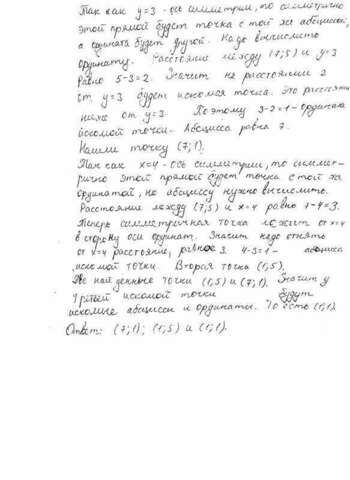 Так как y=3 - ось симметрии, то симметрично
этой прямой будет точка с той же абсциссой,
а ордината будет другой. Надо вычислить
ординату. Расстояние между (7;5) и y=3
равно 5-3=2. Значит на расстоянии 2
от y=3 будет искомая точка. Это расстояние
ниже от y=3. Поэтому 3-2=1 - ордината
искомой точки. Абсцисса равна 7.
Нашли точку (7;1).
Так как x=4 - ось симметрии, то симмет-
рично этой прямой будет точка с той же
ординатой, но абсциссу нужно вычислить.
Расстояние между (7;5) и x=4 равно 7-4=3.
Теперь симметричная точка лежит от x=4
в сторону оси ординат. Значит надо отнять
от x=4 расстояние, равное 3. 4-3=1 - абсцисса
искомой точки. Вторая точка (1;5).
Уже найденные точки (1;5) и (7;1). Значит у
третьей искомой точки будут
искомые абсциссы и ординаты. То есть (1;1).
Ответ: (7;1); (1;5) и (1;1).